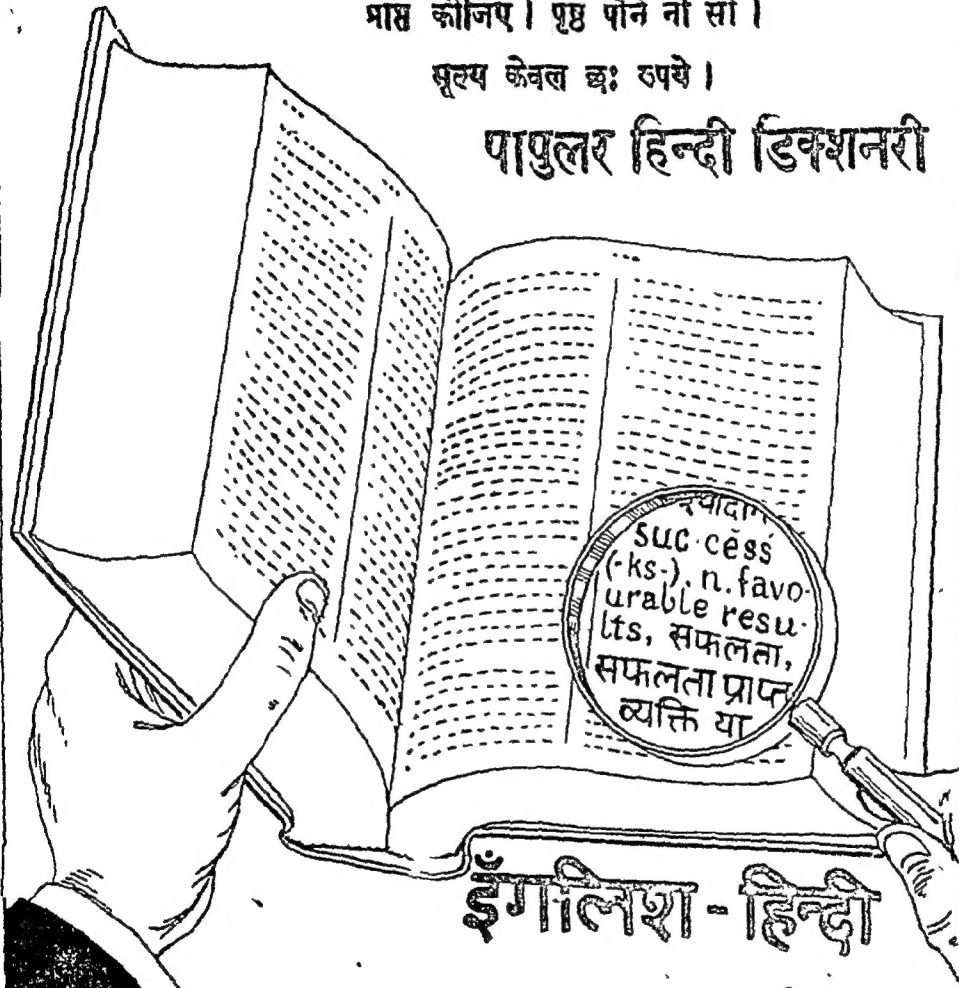 प्राप्त कीजिए । पृष्ठ पौने नौ सौ ।
मूल्य केवल छः रुपये ।
पापुलर हिन्दी डिक्शनरी
suc·cess
(-ks-), n. favo-
urable resu-
lts, सफलता,
सफलता प्राप्त
व्यक्ति या
इँगलिश - हिन्दी